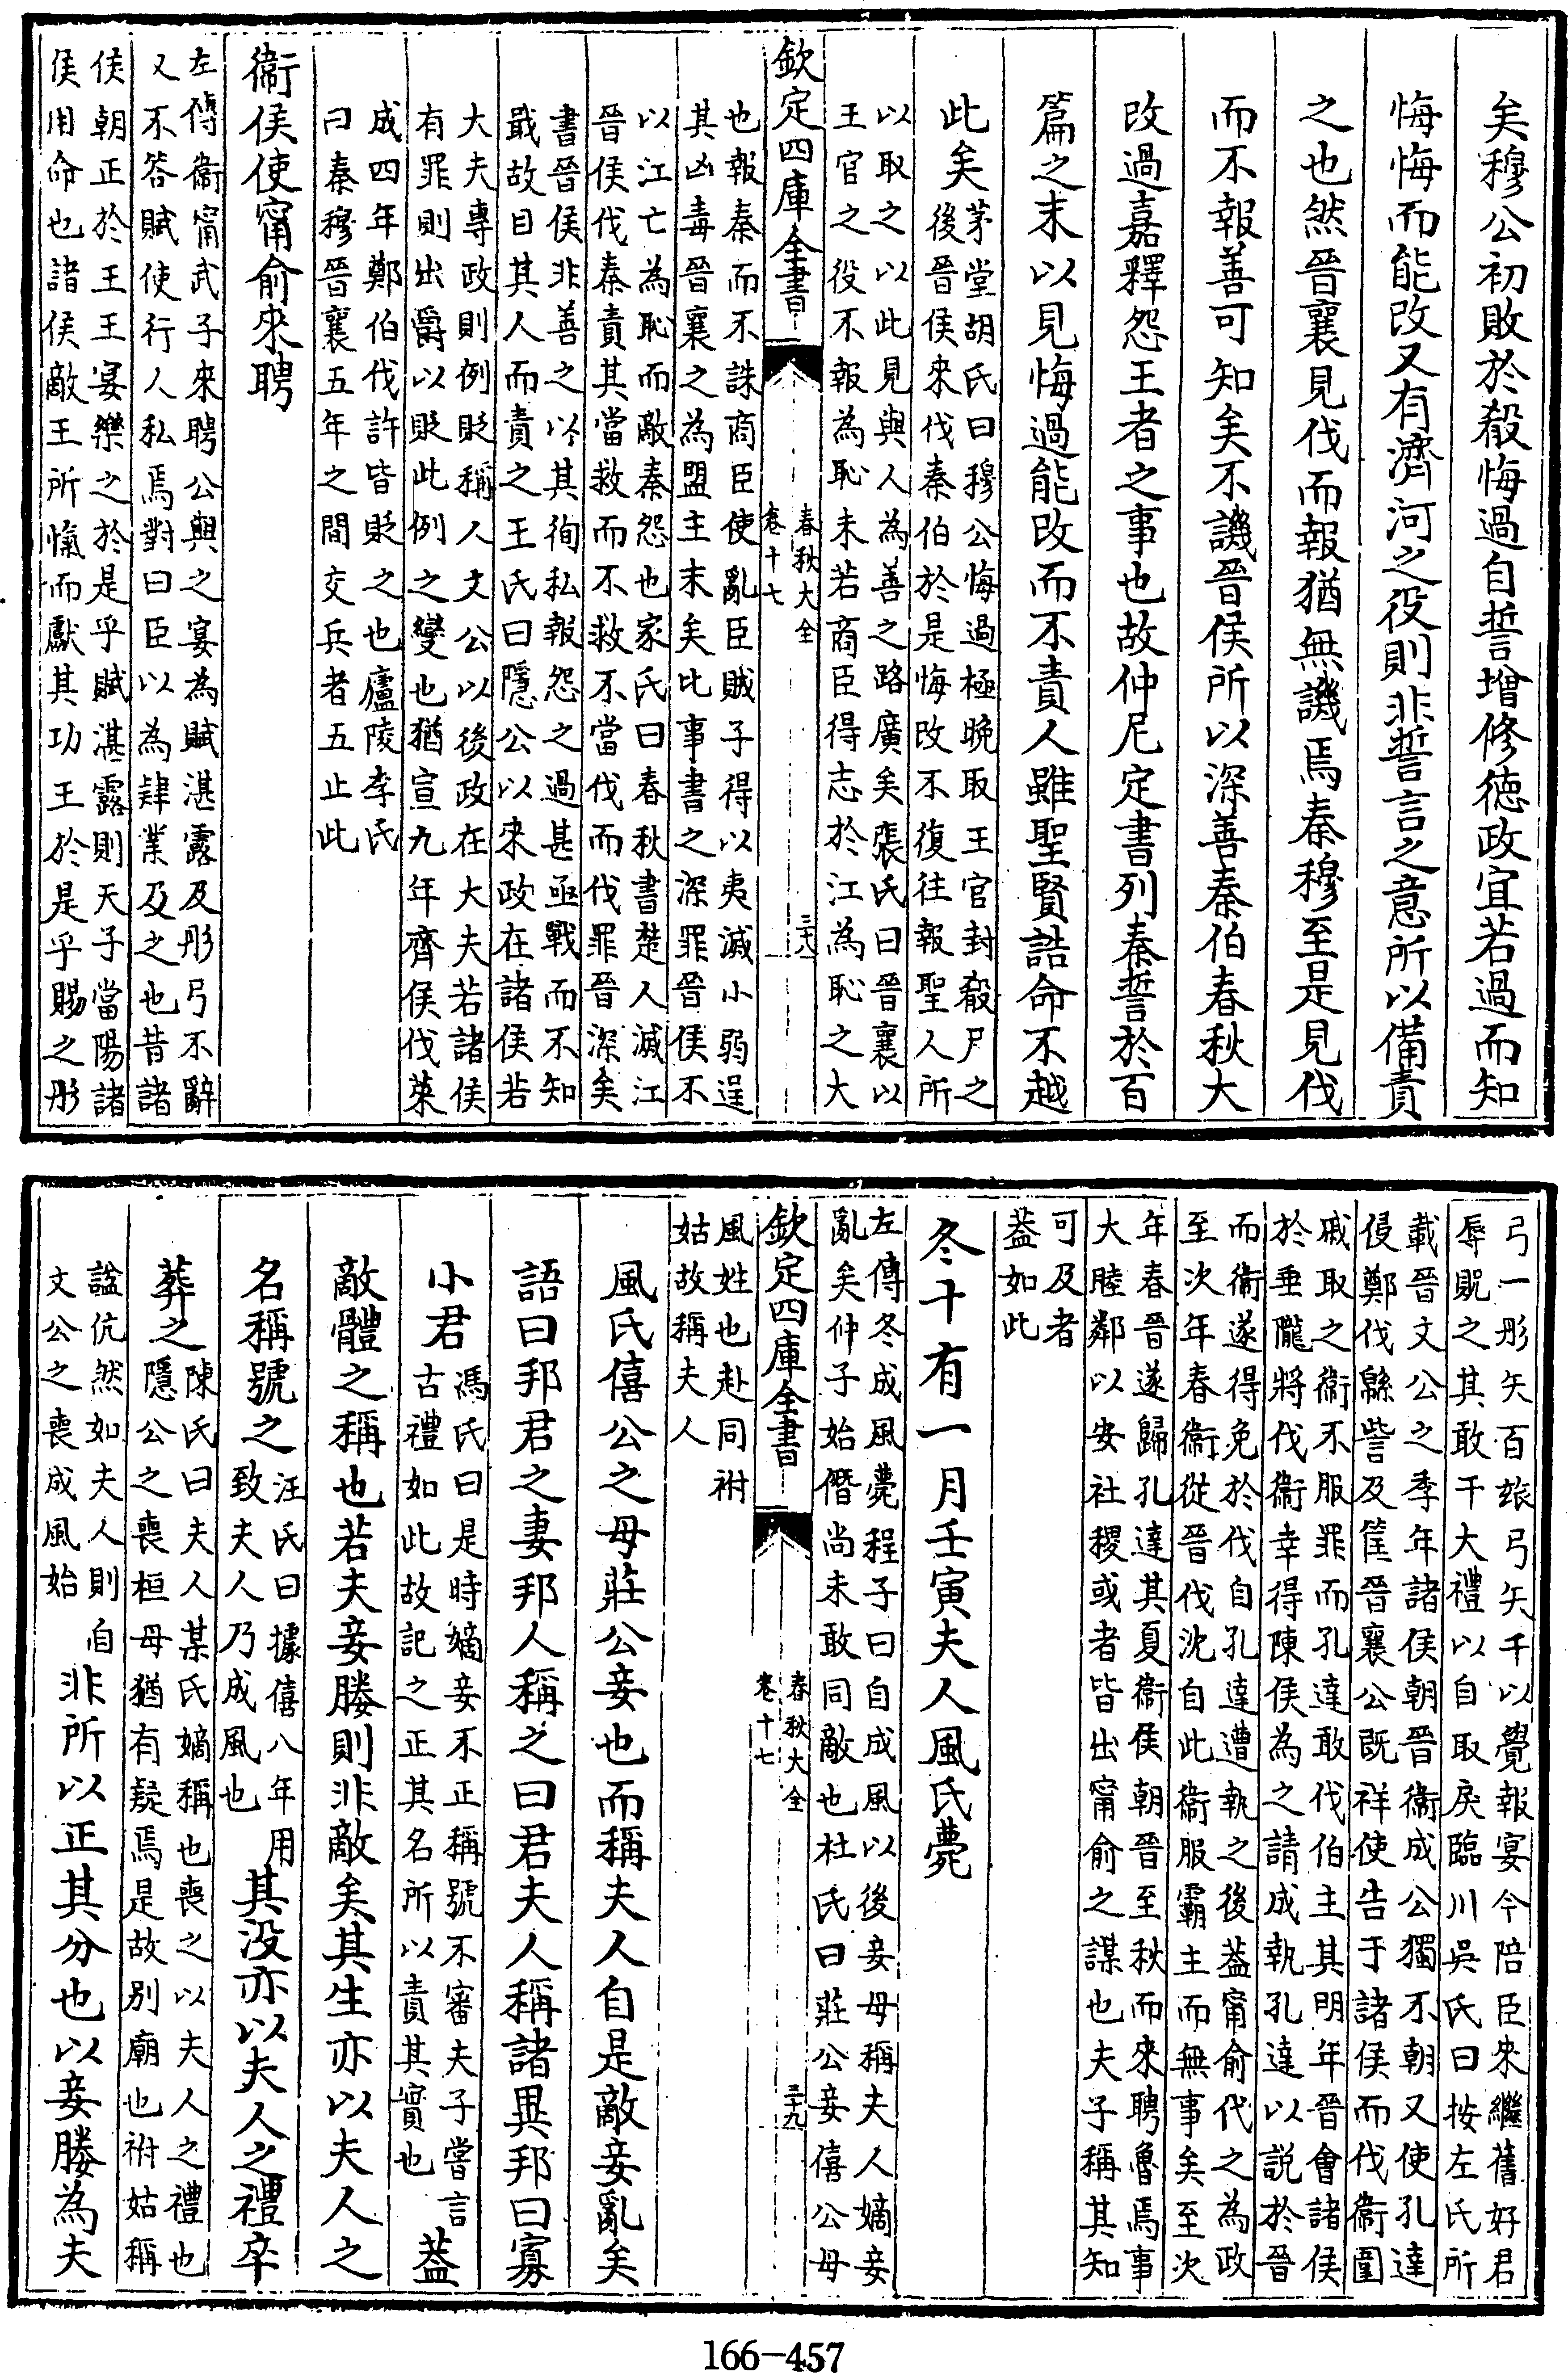 矣穆公初敗於殽悔過自誓增修徳政宜若過而知
悔悔而能改又有濟河之役則非誓言之意所以備責
之也然晉襄見伐而報猶無譏焉秦穆至是見伐
而不報善可知矣不譏晉侯所以深善秦伯春秋大
改過嘉釋怨王者之事也故仲尼定書列秦誓於百
篇之末以見悔過能改而不責人雖聖賢誥命不越
此矣
茅堂胡氏曰穆公悔過極晚取王官封殽尸之
後晉侯來伐秦伯於是悔改不復往報聖人所
以取之以此見與人為善之路廣矣張氏曰晉襄以
王官之役不報為恥未若商臣得志於江為恥之大
欽定四庫全書
春秋大全
卷十七
三十八
也報秦而不誅商臣使亂臣賊子得以夷滅小弱逞
其凶毒晉襄之為盟主末矣比事書之深罪晉侯不
以江亡為恥而敵秦怨也家氏曰春秋書楚人滅江
晉侯伐秦責其當救而不救不當伐而伐罪晉深矣
書晉侯非善之以其徇私報怨之過甚亟戰而不知
戢故目其人而責之王氏曰隱公以來政在諸侯若
大夫專政則例貶稱人文公以後政在大夫若諸侯
有罪則出爵以貶此例之變也猶宣九年齊侯伐萊
成四年鄭伯伐許皆貶之也廬陵李氏
曰秦穆晉襄五年之間交兵者五止此
衞侯使甯俞來聘
左傳衞甯武子來聘公與之宴為賦湛露及彤弓不辭
又不答賦使行人私焉對曰臣以為肄業及之也昔諸
侯朝正於王王宴樂之於是乎賦湛露則天子當陽諸
侯用命也諸侯敵王所愾而獻其功王於是乎賜之彤
弓一彤矢百玈弓矢千以覺報宴今陪臣來繼舊好君
辱貺之其敢干大禮以自取戾臨川吳氏曰按左氏所
載晉文公之季年諸侯朝晉衞成公獨不朝又使孔達
侵鄭伐緜訾及匡晉襄公既祥使告于諸侯而伐衞圍
戚取之衞不服罪而孔達敢伐伯主其明年晉會諸侯
於垂隴將伐衞幸得陳侯為之請成執孔達以説於晉
而衞遂得免於伐自孔達遭執之後葢甯俞代之為政
至次年春衞從晉伐沈自此衞服霸主而無事矣至次
年春晉遂歸孔達其夏衞侯朝晉至秋而來聘魯焉事
大睦鄰以安社稷或者皆出甯俞之謀也夫子稱其知
可及者
葢如此
冬十有一月壬寅夫人風氏薨
左傳冬成風薨程子曰自成風以後妾母稱夫人嫡妾
亂矣仲子始僭尚未敢同敵也杜氏曰莊公妾僖公母
欽定四庫全書
春秋大全
卷十七
三十九
風姓也赴同祔
姑故稱夫人
風氏僖公之母莊公妾也而稱夫人自是敵妾亂矣
語曰邦君之妻邦人稱之曰君夫人稱諸異邦曰寡
小君
馮氏曰是時嫡妾不正稱號不審夫子嘗言
古禮如此故記之正其名所以責其實也
葢
敵體之稱也若夫妾媵則非敵矣其生亦以夫人之
名稱號之
汪氏曰據僖八年用
致夫人乃成風也
其没亦以夫人之禮卒
葬之
陳氏曰夫人某氏嫡稱也喪之以夫人之禮也
隱公之喪桓母猶有疑焉是故别廟也祔姑稱
諡伉然如夫人則自
文公之喪成風始
非所以正其分也以妾媵為夫
166-457